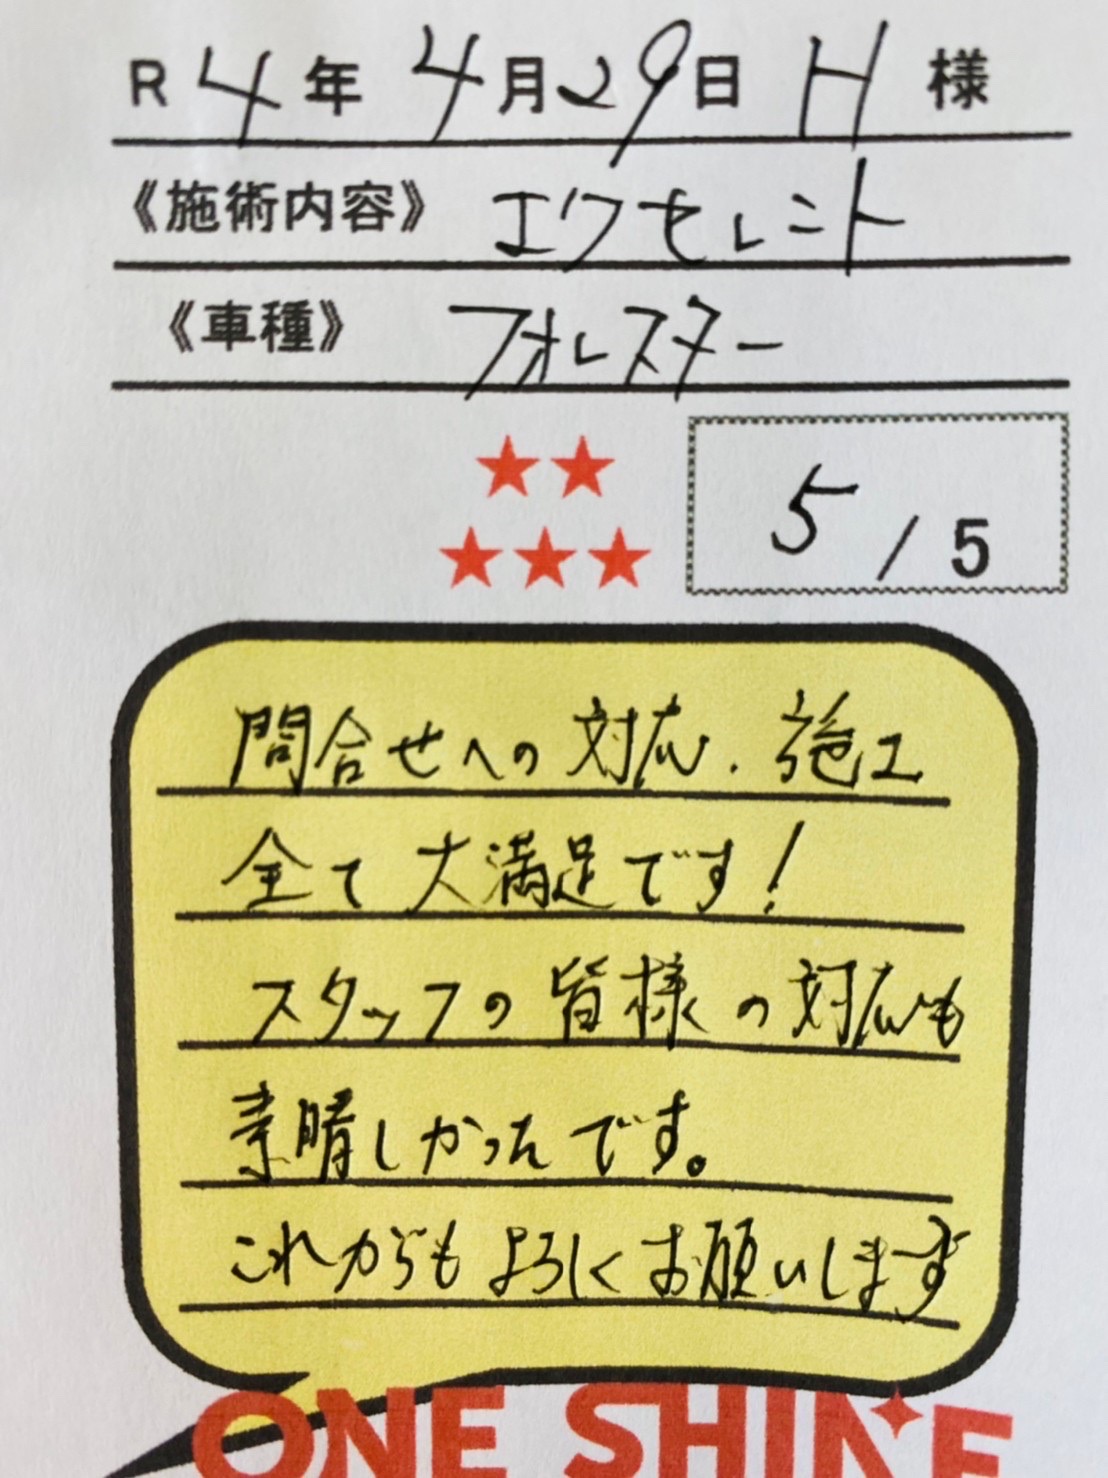 R 4年 4月29日 H 様
《施術内容》 エクセレント
《車種》 フォレスター
5/5
問合せへの対応、施工
全て大満足です!
スタッフの皆様の対応も
素晴しかったです。
これからもよろしくお願いします
ONE SHINE